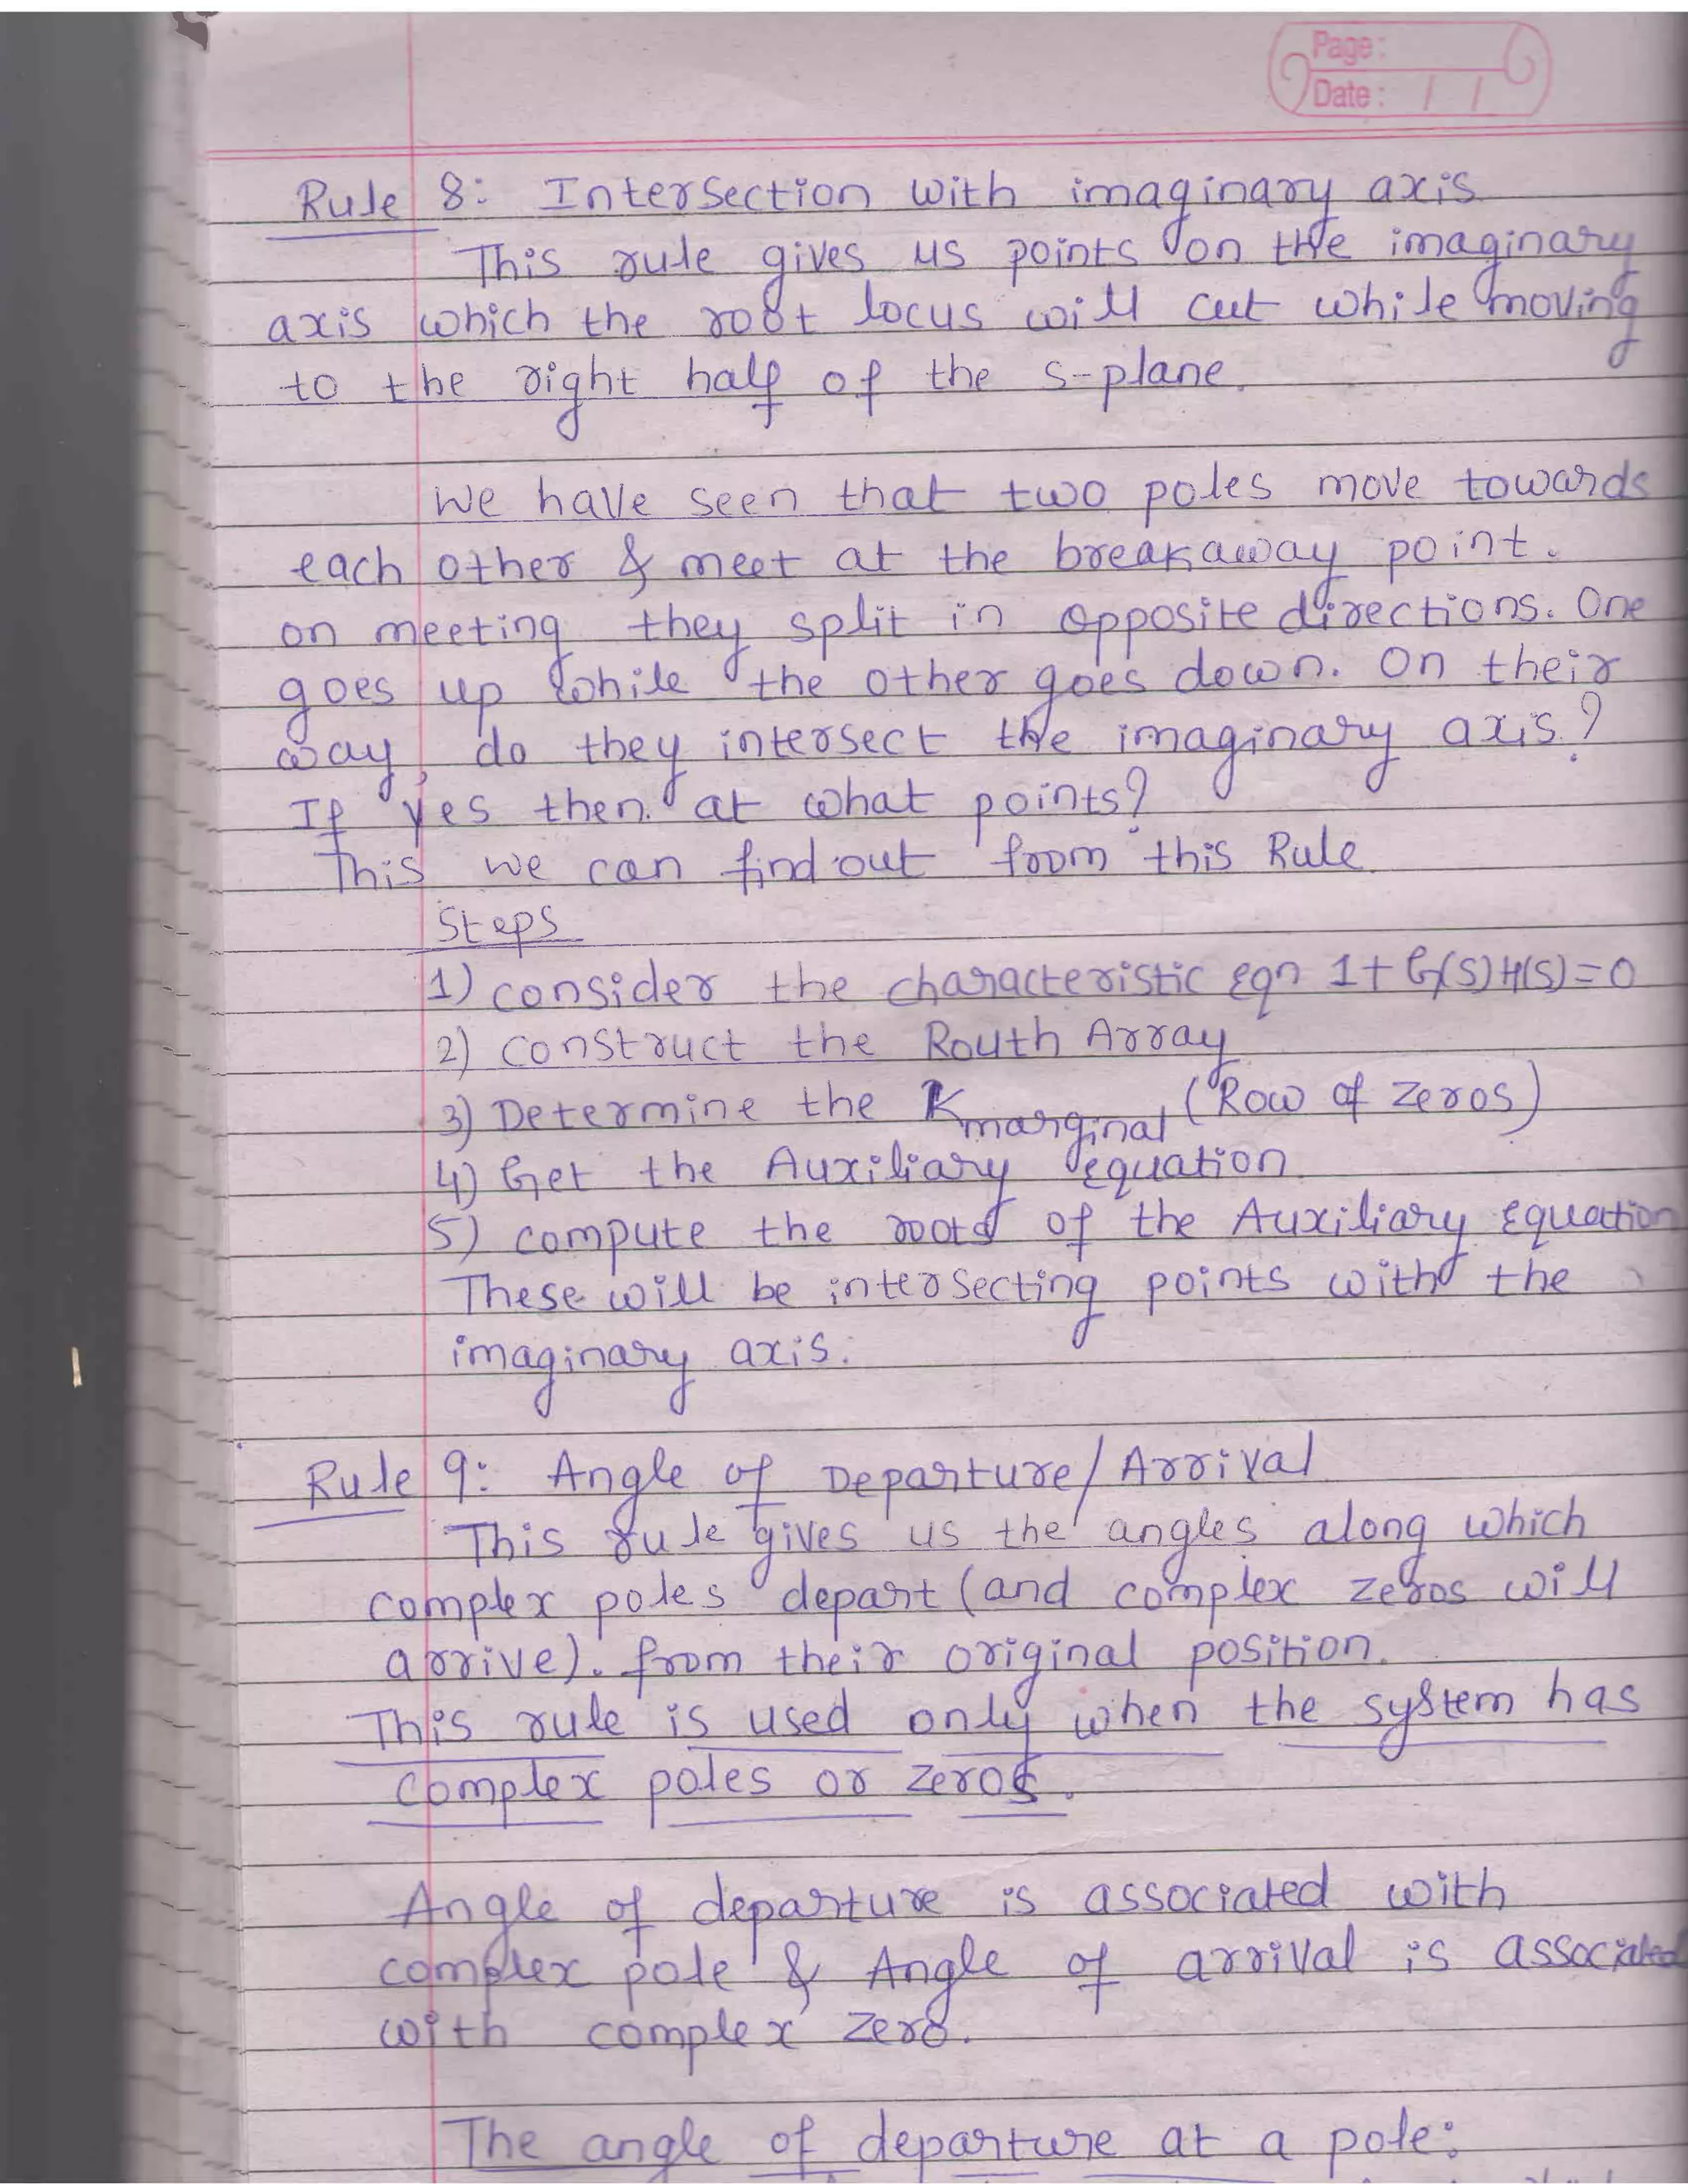 Page:
Date: / /
Rule 8: Intersection with imaginary axis
This rule gives us points on the imaginary
axis which the root locus will cut while moving
to the right half of the s-plane.
We have seen that two poles move towards
each other & meet at the breakaway point.
on meeting they split in opposite directions. One
goes up while the other goes down. On their
way, do they intersect the imaginary axis?
If yes then at what points?
This we can find out from this Rule.
Steps
1) consider the characteristic eqn 1+G(s)H(s)=0
2) construct the Routh Array
3) Determine the Kmarginal (Row of zeros)
4) Get the Auxiliary equation
5) compute the roots of the Auxiliary Equation
These will be intersecting points with the
imaginary axis.
Rule 9: Angle of Departure/Arrival
This rule gives us the angles along which
complex poles depart (and complex zeros will
arrive). from their original position.
This rule is used only when the system has
complex poles or zeros.
Angle of departure is associated with
complex pole & Angle of arrival is associated
with complex zero.
The angle of departure at a pole: